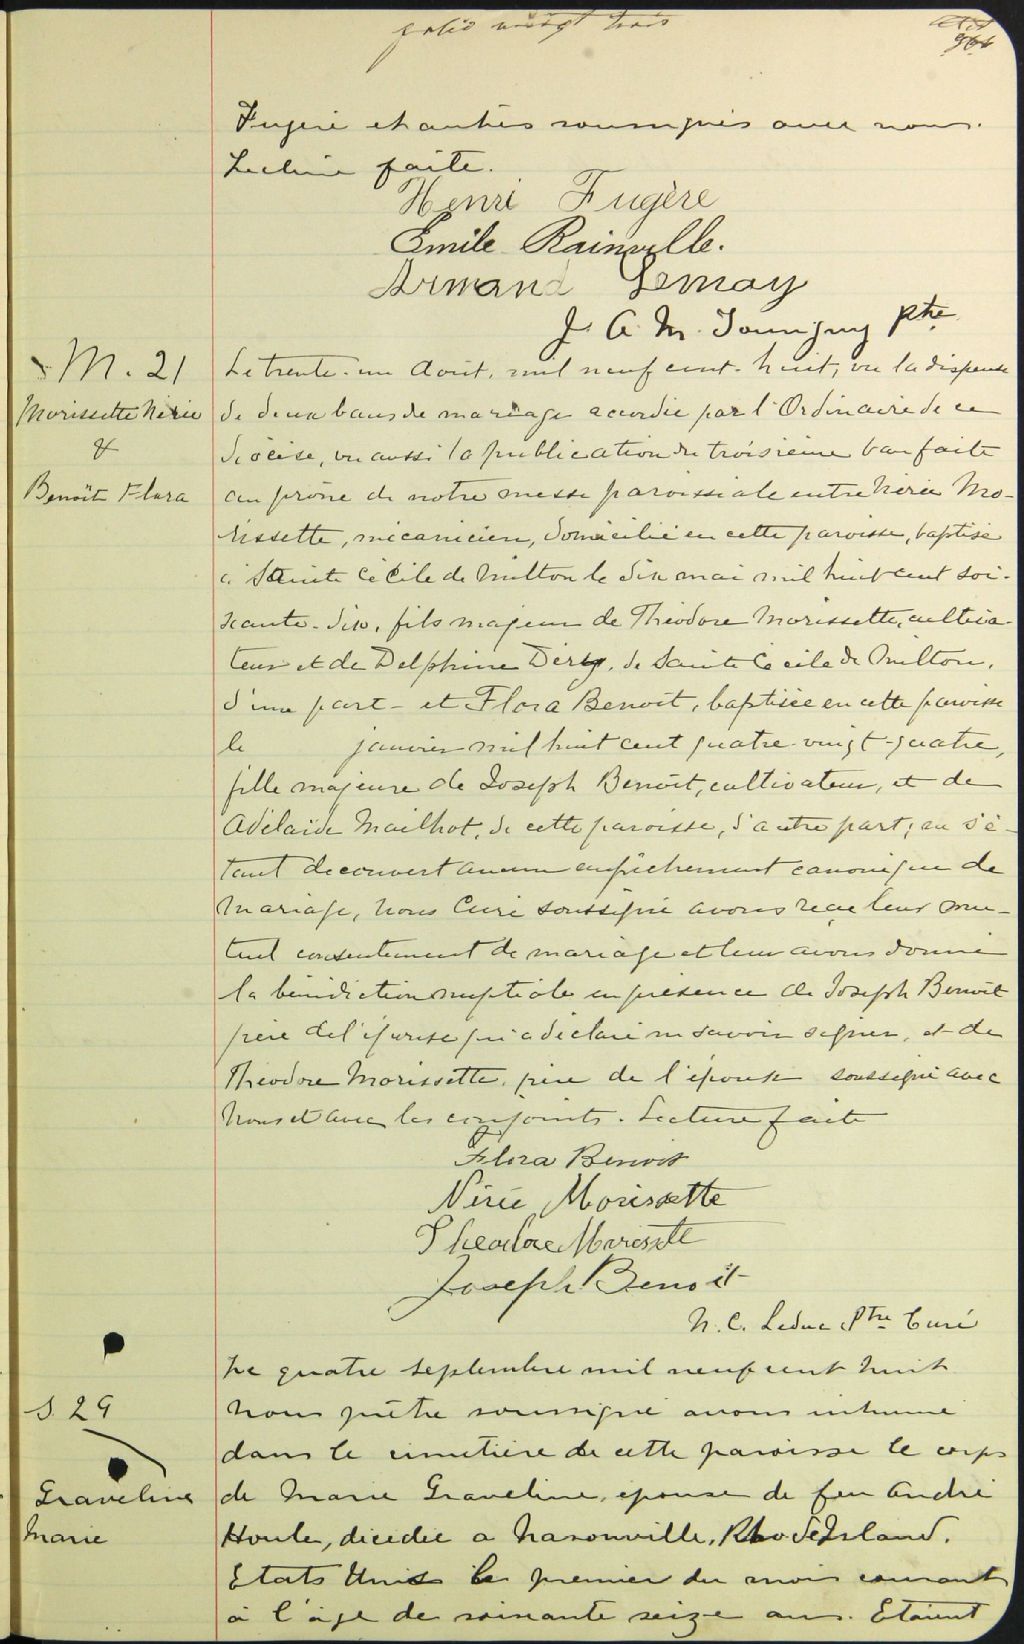 folio vingt trois
Fugère et autres soussignés avec nous.
Lecture faite.
Henri Fugère
Emile Rainville.
Armand Lemay
J. A. M. Jourigny ptre
M. 21
Morissette Nérée
&
Benoît Flora
Le trente-un Août, mil neuf cent-huit, vu la dispense
de deux bans de mariage accordée par l'Ordinaire de ce
diocèse, vu aussi la publication du troisième ban faite
au prône de notre messe paroissiale entre Nérée Mo-
rissette, mécanicien, domicilié en cette paroisse, baptisé
à Sainte Cécile de Milton le dix mai mil huit cent soi-
xante-dix, fils majeur de Théodore Morissette, cultiva-
teur et de Delphine Déry, de Sainte Cécile de Milton,
d'une part - et Flora Benoit, baptisée en cette paroisse
le janvier mil huit cent quatre-vingt-quatre,
fille majeure de Joseph Benoît, cultivateur, et de
Adélaïde Mailhot, de cette paroisse, d'autre part; en s'é-
tant decouvert aucun empêchement canonique de
mariage, nous Curé soussigné avons reçu leur mu-
tuel consentement de mariage et leur avons donné
la bénédiction nuptiale en présence de Joseph Benoît
père de l'épouse qui a déclaré ne savoir signer, et de
Théodore Morissette, père de l'époux soussigné avec
nous et avec les conjoints. Lecture faite
Flora Benoit
Nérée Morissette
Theodore Morissette
Joseph Benoit
N. C. Leduc Ptre Curé
S 29
Graveline
Marie
Le quatre septembre mil neuf cent huit
nous prêtre soussigné avons inhumé
dans le cimetière de cette paroisse le corps
de Marie Graveline, épouse de feu André
Houle, décédée a Nasonville, Rhode Island,
Etats Unis le premier du mois courant
à l'âge de soixante seize ans. Etaient